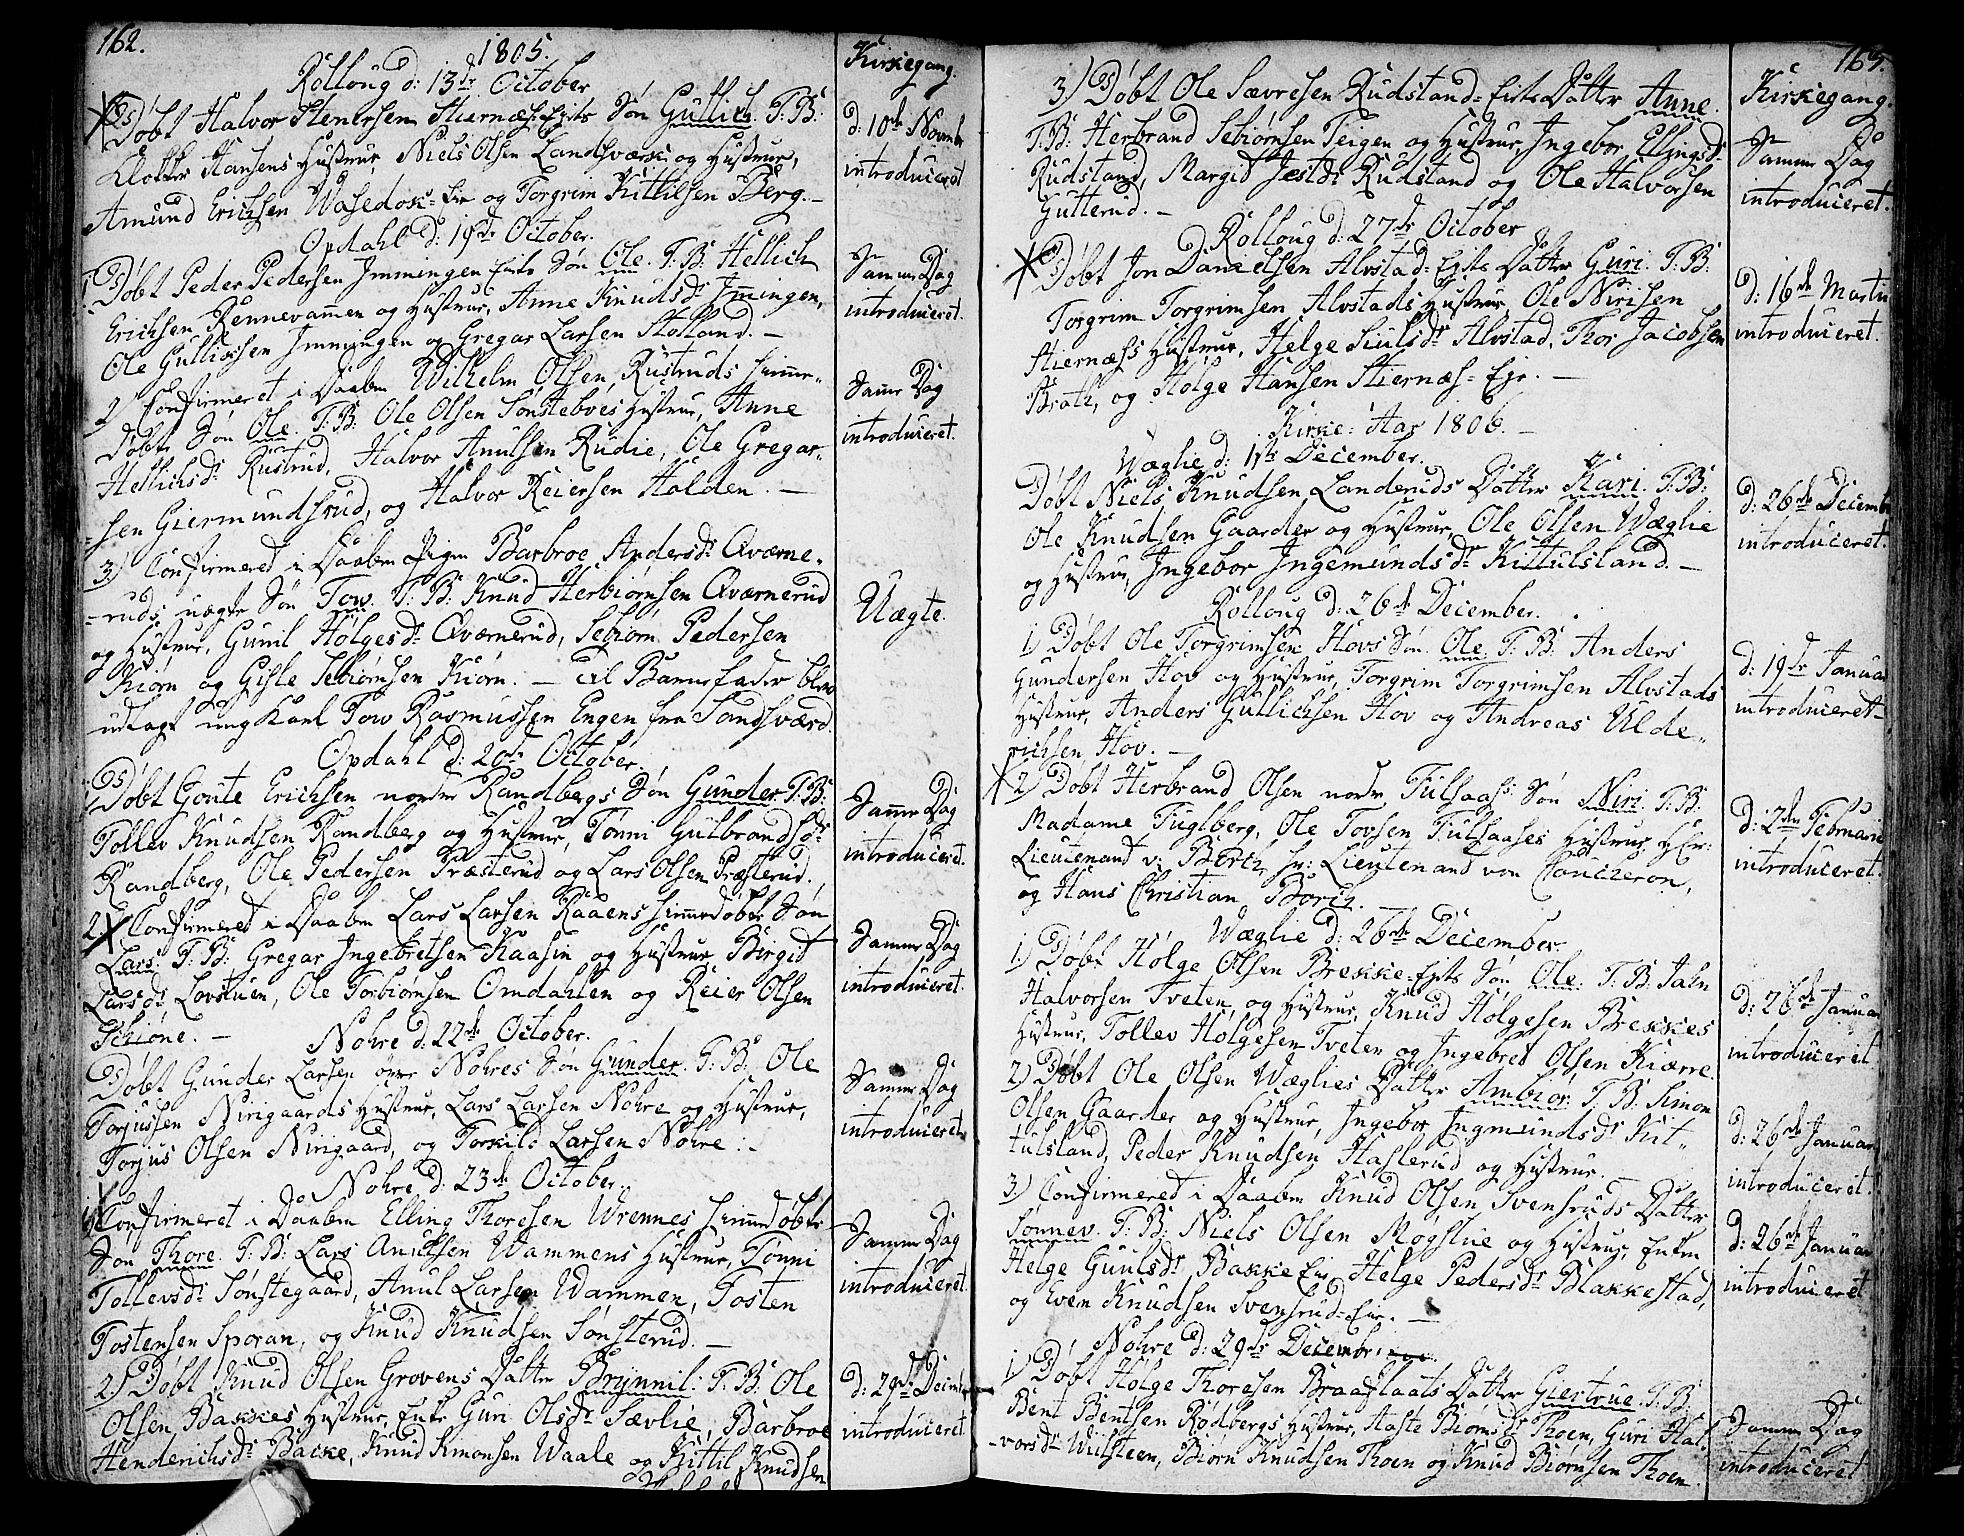 162.
1805.
Kirkegang.
Rolloug d: 13de October
Døbt Halvor Stenersen Stiernæs-Ejets Søn Gullich. T: B:
Hansens Hustrue, Niels Olsen Landsværk og Hustrue,
Amund Erichsen og Torgrim Kittilsen Berg.-
d: 10de Novembr
introduceret
Opdahl d: 19de October.
Døbt Peder Pedersen Immingen Eiets Søn Ole. T: B: Hellich
Erichsen Rennevammen og Hustrue, Anne Knudsdr Immingen,
Ole Gullichsen Immingen og Gregar Larsen Stolland.-
Samme Dag
introduceret.
2) Confirmeret i Daaben Wilhelm Olsen Rustruds hiemme-
døbte Søn Ole. T: B: Ole Olsen Sønstebøes Hustrue, Anne
Hellichsdr Rustrud, Halvor Anulsen Rudie, Ole Gregar-
sen Giermundsrud, og Halvor Reiersen Holden.-
Samme Dag
introduceret.
3) Confirmered i Daaben Pigen Barbroe Andersdr Qværne-
ruds uægte Søn Tow. T: B: Knud Herbiørnsen Qværnerud
og Hustrue, Gunil Holgesdr Qværnerud, Sebiørn Pedersen
Kiørn og Gisle Sebiørnsen Kiørn. - Til Barnefader blev
udlagt ung Karl Tow Rasmussen Engen fra Sandsværd.
Uægte.
Opdahl d: 20de October.
Døbt Goute Erichsen nordre Randbergs Søn Gunder. T: B:
Tollev Knudsen Randberg og Hustrue, Tønni Gulbrandsdr
Randberg, Ole Pedersen Præsterud og Lars Olsen Præsterud.
Samme Dag
introduceret.
2. Confirmered i Daaben Lars Larsen Raaens hiemmedøbte Søn
Lars. T: B: Gregar Ingebretsen Kaasin og Hustrue, Birgit
Larsdr Lovstuen, Ole Torbiørnsen Omdahlen og Reier Olsen
Schiøne.-
Samme Dag
introduceret.
Nohre d: 22de October.
Døbt Gunder Larsen øvre Nohres Søn Gunder. T: B: Ole
Torjussen Nirigaards Hustrue, Lars Larsen Nohre og Hustrue,
Torjus Olsen Nirigaard, og Torkil Larsen Nohre.-
Samme Dag
introduceret.
Nohre d: 23de October.
Confirmeret i Daaben Elling Thoresen Wrennes hiemmedøbte
Søn Thore. T: B: Lars Anulsen Wammens Hustrue, Tønni
Tollevsdr Sønstegaard, Anul Larsen Wammen, Tosten
Tostensen Sporan, og Knud Knudsen Sønsterud.-
Samme Dag
introduceret.
2) Døbt Knud Olsen Grovens Datter Brynnil. T: B: Ole
Olsen Bakkes Hustrue, Enke Guri Olsdr Sævlie, Barbroe
Henderichsdr Backe, Knud Simonsen Waale og Kittil Knudsen
d: 29de Decmbr
introduceret.
163.
Kirkegang.
3) Døbt Ole Sævresen Rudstand-Eiets Datter Anne.
T: B: Herbrand Sebiørnsen Teigen og Hustrue, Ingebor Ellingsdr
Rudstand, Margit Rudstand og Ole Halvorsen
Gutterud.-
Samme Dag
introduceret.
Rolloug d: 27de October
Døbt Jon Danielsen Alvstad-Ejets Datter Guri. T: B:
Torgrim Torgrimsen Alvstads Hustrue, Ole Nirisen
Stiernæss Hustrue, Helge Alvstad, Thor Jacobsen
Brath, og Holge Hansen Stiernæs-Eje.-
D: 16de Martii
introduceret.
Kirke-Aar 1806.-
Wæglie d: 1ste December.
Døbt Niels Knudsen Landeruds Datter Kari. T: B:
Ole Knudsen Gaarder og Hustrue, Ole Olsen Wæglie
og Hustrue, Ingebor Ingemundsdr Kittulsland.-
d: 26de Decembr
introduceret.
Rolloug d: 26de December.
1) Døbt Ole Torgrimsen Hovs Søn Ole. T: B: Anders
Gundersen Hov og Hustrue, Torgrim Torgrimsen Alvstads
Hustrue, Anders Gullichsen Hov og Andreas Ulde-
richsen Hov.-
d: 19de Januar
introduceret-
2) Døbt Herbrand Olsen nordre Fulsaas: Søn Niri. T: B:
Madame Fuglberg, Ole Tovsen Fulsaases Hustrue, Hr:
Lieutenand v: Borch, hr: Lieutenand von Concheron,
og Hans Christian Borch.
d: 2den Februarii
introduceret.
Wæglie d: 26de December.
1) Døbt Holge Olsen Brekke-Ejets Søn Ole. T: B: Jaln
Halvorsen Tveten og Hustrue, Knud Holgesen Brekkes
Hustrue, Tollev Holgesen Tveten og Ingebret Olsen Kiærre.
d: 26de Januar
introduceret
2) Døbt Ole Olsen Wæglies Datter Ambior. T: B: Simon
Olsen Gaarder og Hustrue, Ingebor Ingmundsdr Kit-
tulsland, Peder Knudsen Haslerud og Hustrue.
d: 26de Januar
introduceret.
3) Confirmered i Daaben Knud Olsen Svensruds Datter
Sønnev. T: B: Niels Olsen Mogstue og Hustrue, Enken
Helge Guulsdr Bakke Eie, Helge Pedersdr Blakkestad,
og Even Knudsen Svensrud-Eie.-
d: 26de Januar
introduceret
Nohre d: 29de December.
1) Døbt Holge Thoresen Braaflaats Datter Giertrue. T: B:
Bent Bentsen Rødbergs Hustrue, Aaste Biørnsdr Thoen, Guri Hal-
vorsdr Wiilsteen, Biørn Knudsen Thoen og Knud Biørnsen Thoen.
Samme Dag
introduceret